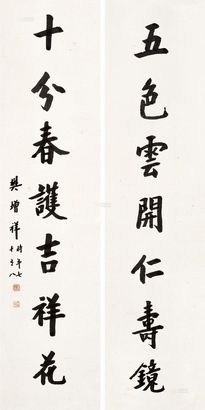 五色雲開仁壽鏡
十分春護吉祥花
樊增祥時年七
十有八